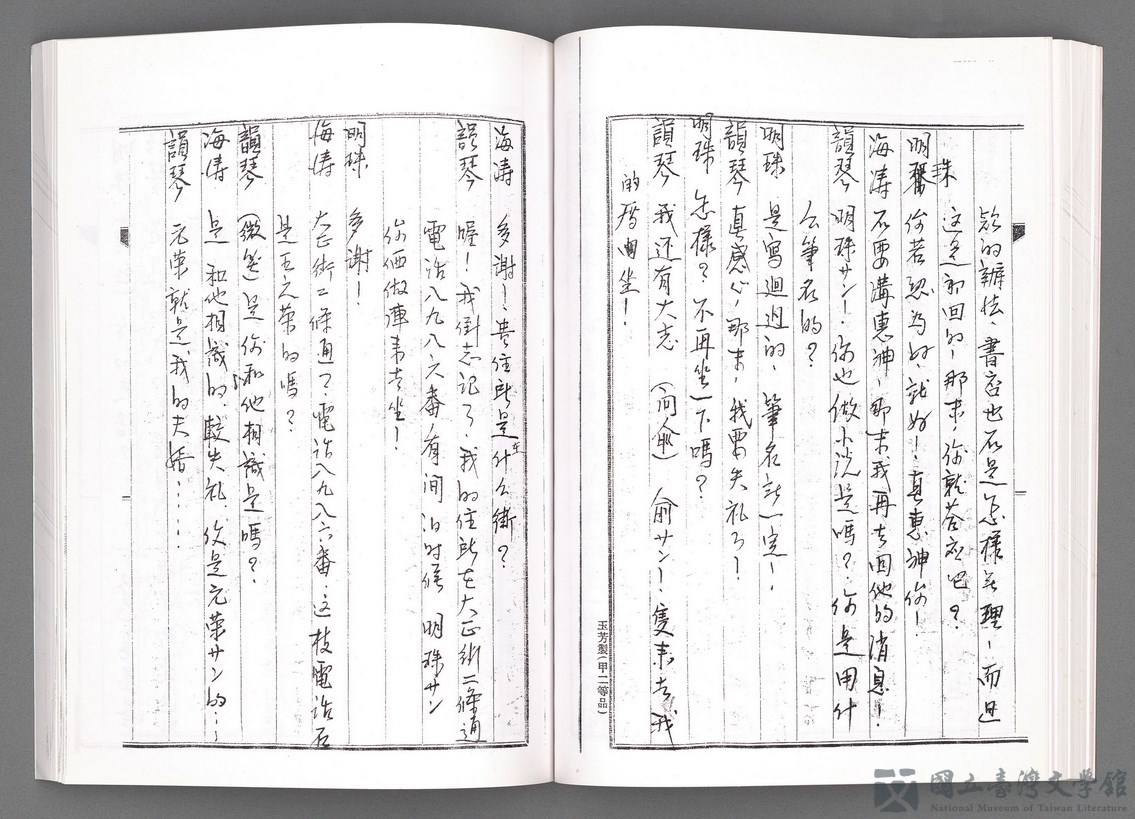 欵的辦法、書店也不是怎樣無理！而且
這是初回的！那末、你就答应吧？
明珠 你若認為好、就好！真惠神你！
海涛 不要講惠神！那末我再去回他的消息！
韻琴 明珠サン！你也做小説是嗎？你是用什
么筆名的？
明珠 是寫迴過的、筆名計一定！
韻琴 真感心！那末、我要失礼了！
明珠 怎樣？不再坐一下嗎？
韻琴 我还有大志 （向俞） 俞サン！隻来去我
的厝坐！
玉芳製（甲二等品）
海涛 多謝！貴住所是在什么街？
韻琴 喔！我倒忘記了、我的住所在大正街二條通
電话八九八六番、有间的时候 明珠サン
你偭做陣来去坐！
明珠 多謝！
海涛 大正街二條通？電话八九八六番、这枝電话不
是王元荣的嗎？
韻琴 （微笑）是、你和他相識是嗎？
海涛 是 和他相識的、較失礼、你是元荣サン的…
韻琴 元荣就是我的夫婿……
國立臺灣文學館
National Museum of Taiwan Literature